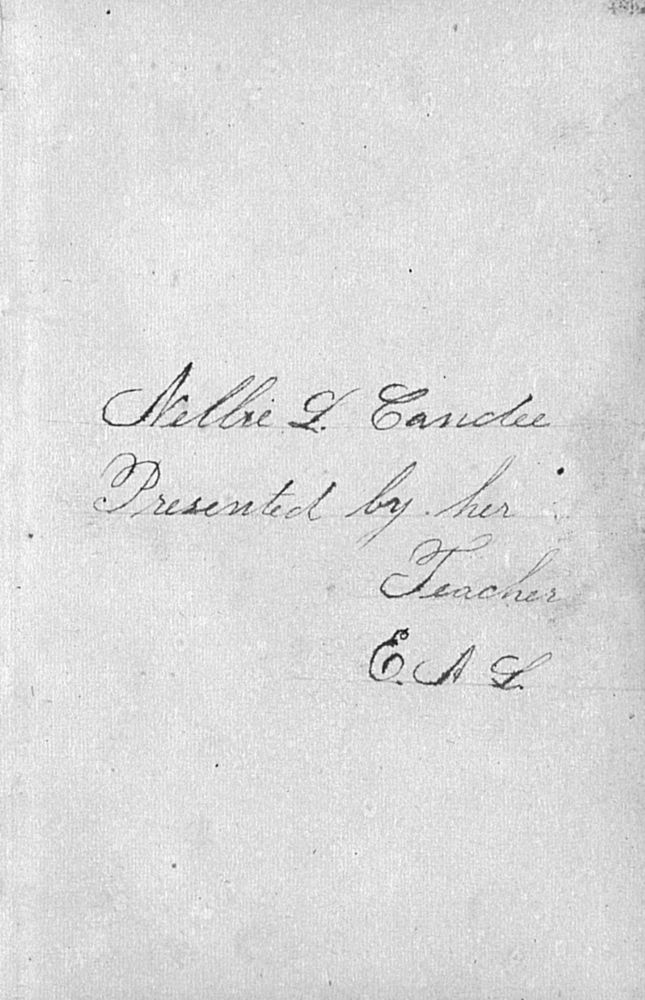 Nellie L. Candee
Presented by her
Teacher
E. A L.